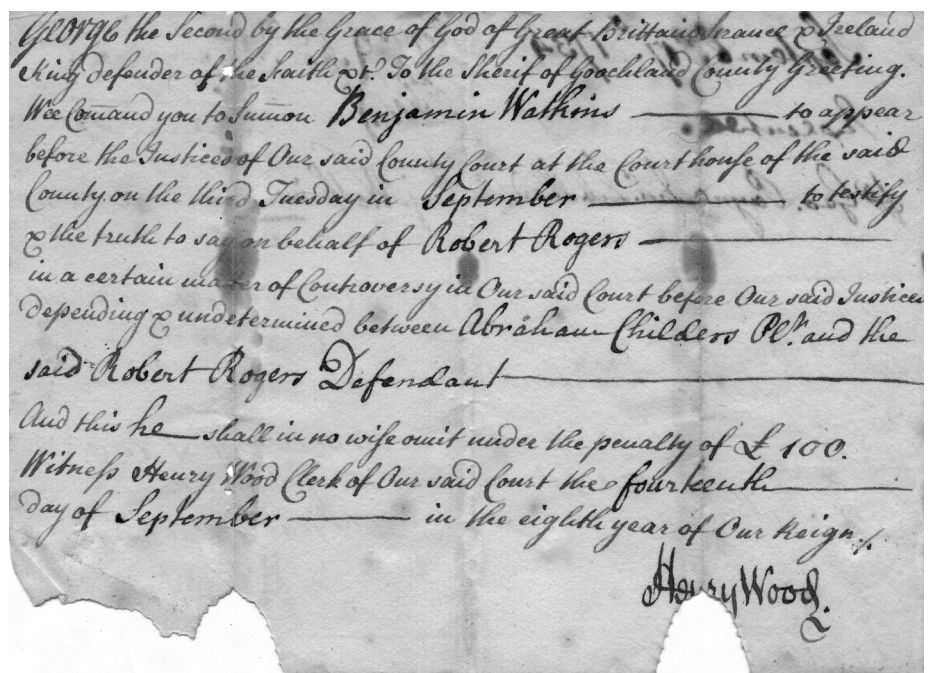 George the Second by the Grace of God of Great Brittain France & Ireland
King defender of the Faith &c. To the Sherif of Goochland County Greeting.
Wee Comand you to Sumon Benjamin Watkins to appear
before the Justices of Our said County Court at the Court house of the said
County on the third Tuesday in September to testify
& the truth to say on behalf of Robert Rogers
in a certain matter of Controversy in Our said Court before Our said Justices
depending & undetermined between Abraham Childers Plt. and the
said Robert Rogers Defendant
And this he shall in no wise omit under the penalty of £ 100.
Witness Henry Wood Clerk of Our said Court the fourteenth
day of September in the eighth year of Our Reign
Henry Wood.